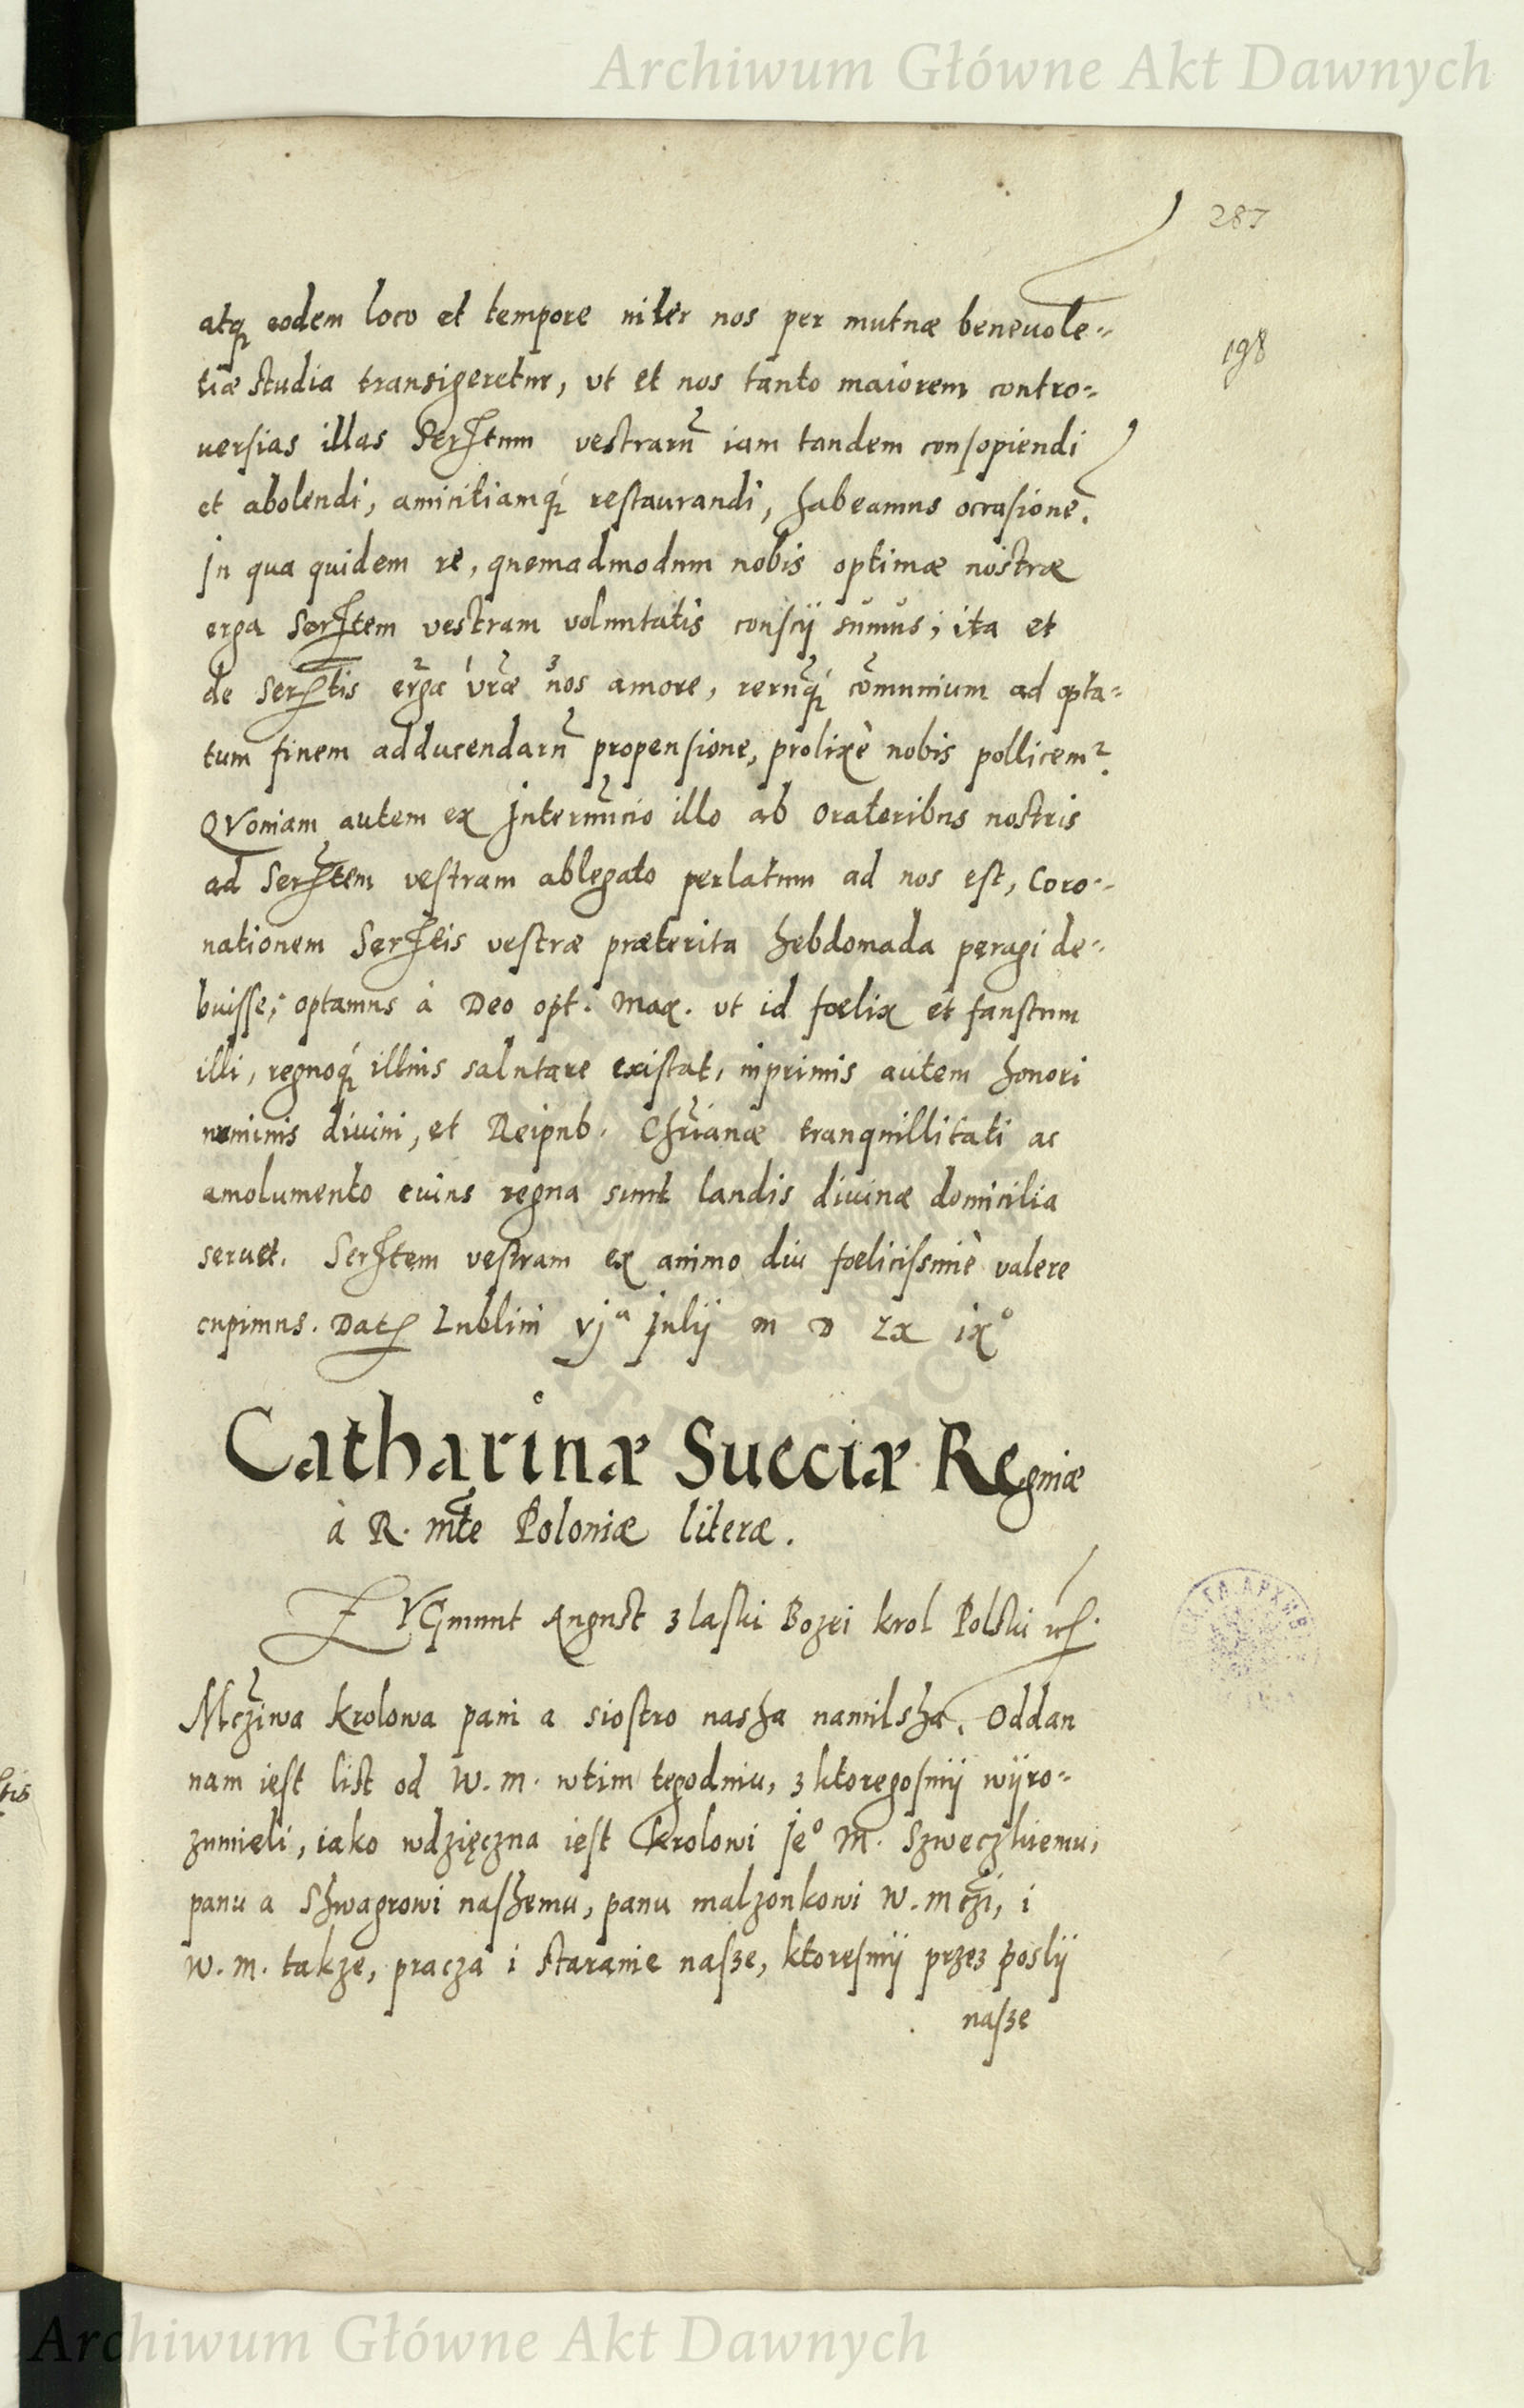 Archiwum Główne Akt Dawnych
287
198
atq; eodem loco et tempore inter nos per mutuæ beneuolē=
tiæ studia transigeretur, vt et nos tanto maiorem contro=
uersias illas Serᵗum vestrarū iam tandem consopiendi
et abolendi, amicitiamq́; restaurandi, habeamus occasionē.
In qua quidem re, quemadmodum nobis optimæ nostræ
erga Serᵗtem vestram voluntatis conscij sŭmŭs; ita et
de Serᵗtis erga vr̃æ nos amore, rerūq́; cōmunium ad opta=
tum finem adducendarū propensione, prolixè nobis pollicemʳ.
QVoniam autem ex Internūcio illo ab Oratoribus nostris
ad Serᵗtem vestram ablegato perlatum ad nos est, Coro=
nationem Serᵗtis vestræ præterita hebdomada peragi de=
buisse; optamus à Deo opt. Max. vt id fœlix et faustum
illi, regnoq́; illius salutare existat, inprimis autem honori
nominis diuini, et Reipub. Chr̃ianæ tranquillitati ac
amolumento cuius regna sunt laudis diuinæ domicilia
seruet. Serᵗtem vestram ex animo diu fœlicissimè valere
cupimus. Datę Lublini vjᵃ Julij M D Lx ixº
Catharinæ Sueciæ Reginæ
à R. Mt̃e Poloniæ literæ.
ZYGmunt August z laski Bozei krol Polski etc.
Mcz̃iwa krolowa pani a siostro nasha namilsha. Oddan
nam iest list od W. M. wtim tegodniu, z ktoregosmÿ wÿro=
zumieli, iako wdzięczna iest krolowi Jeº M. Szweczkiemu,
panu a Shwagrowi nashemu, panu malzonkowi W. Mcz̃i, i
W. M. takze, pracza i staranie nasze, ktoresmÿ przez poslÿ
nasze
Archiwum Główne Akt Dawnych